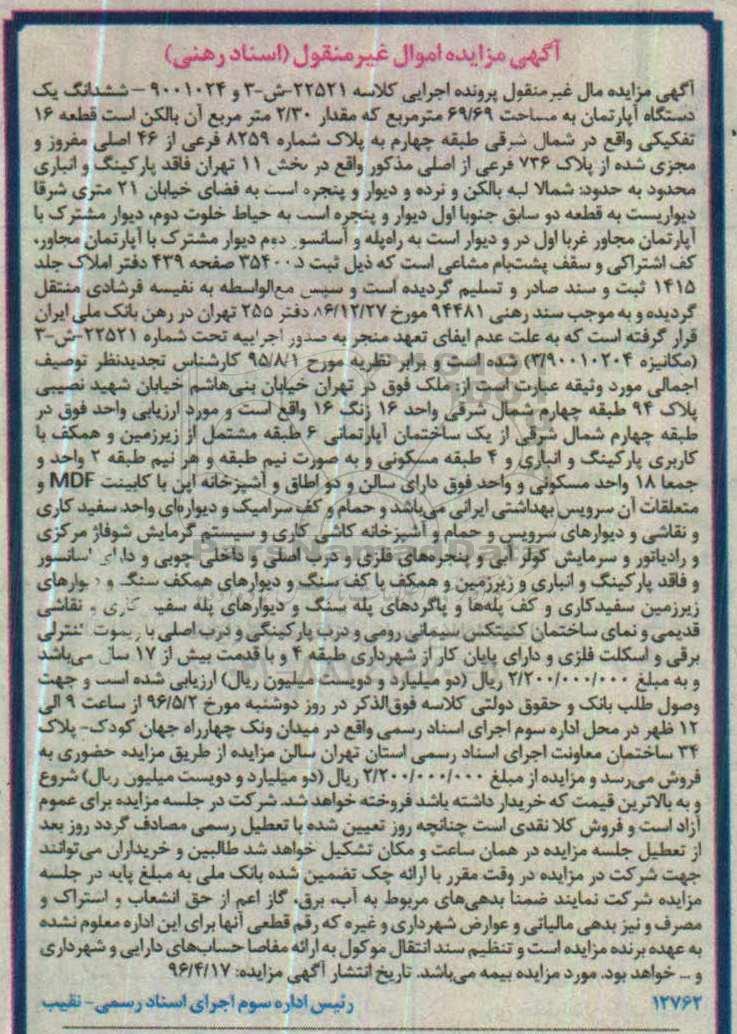 آگهی مزایده اموال غیرمنقول (اسناد رهنی)
آگهی مزایده مال غیرمنقول پرونده اجرایی کلاسه ۲۲۵۲۱-ش-۳ و ۹۰۰۱۰۲۴ – ششدانگ یک
دستگاه آپارتمان به مساحت ۶۹/۶۹ مترمربع که مقدار ۲/۳۰ متر مربع آن بالکن است قطعه ۱۶
تفکیکی واقع در شمال شرقی طبقه چهارم به پلاک شماره ۸۲۵۹ فرعی از ۴۶ اصلی مفروز و
مجزی شده از پلاک ۷۳۶ فرعی از اصلی مذکور واقع در بخش ۱۱ تهران فاقد پارکینگ و انباری
محدود به حدود: شمالا لبه بالکن و نرده و دیوار و پنجره است به فضای خیابان ۲۱ متری شرقا
دیواریست به قطعه دو سابق جنوبا اول دیوار و پنجره است به حیاط خلوت دوم، دیوار مشترک با
آپارتمان مجاور غربا اول در و دیوار است به راه‌پله و آسانسور دوم دیوار مشترک با آپارتمان مجاور،
کف اشتراکی و سقف پشت‌بام مشاعی است که ذیل ثبت ۳۵۴۰۰ صفحه ۴۳۹ دفتر املاک جلد
۱۴۱۵ ثبت و سند صادر و تسلیم گردیده است و سپس مع‌الواسطه به نفیسه فرشادی منتقل
گردیده و به موجب سند رهنی ۹۴۴۸۱ مورخ ۸۶/۱۲/۲۷ دفتر ۲۵۵ تهران در رهن بانک ملی ایران
قرار گرفته است که به علت عدم ایفای تعهد منجر به صدور اجراییه تحت شماره ۲۲۵۲۱-ش-۳
(مکانیزه ۳/۹۰۰۱۰۲۰۴) شده است و برابر نظریه مورخ ۹۵/۸/۱ کارشناس تجدیدنظر توصیف
اجمالی مورد وثیقه عبارت است از: ملک فوق در تهران خیابان بنی‌هاشم خیابان شهید نصیبی
پلاک ۹۴ طبقه چهارم شمال شرقی واحد ۱۶ زنگ ۱۶ واقع است و مورد ارزیابی واحد فوق در
طبقه چهارم شمال شرقی از یک ساختمان آپارتمانی ۶ طبقه مشتمل از زیرزمین و همکف با
کاربری پارکینگ و انباری و ۴ طبقه مسکونی و به صورت نیم طبقه و هر نیم طبقه ۲ واحد و
جمعا ۱۸ واحد مسکونی و واحد فوق دارای سالن و دو اطاق و آشپزخانه اپن با کابینت MDF و
متعلقات آن سرویس بهداشتی ایرانی می‌باشد و حمام و کف سرامیک و دیوارهای واحد سفید کاری
و نقاشی و دیوارهای سرویس و حمام و آشپزخانه کاشی کاری و سیستم گرمایش شوفاژ مرکزی
و رادیاتور و سرمایش کولر آبی و پنجره‌های فلزی و درب اصلی و داخلی چوبی و دارای آسانسور
و فاقد پارکینگ و انباری و زیرزمین و همکف با کف سنگ و دیوارهای همکف سنگ و دیوارهای
زیرزمین سفیدکاری و کف پله‌ها و پاگردهای پله سنگ و دیوارهای پله سفید کاری و نقاشی
قدیمی و نمای ساختمان کنیتکس سیمانی رومی و درب پارکینگی و درب اصلی با ریموت کنترلی
برقی و اسکلت فلزی و دارای پایان کار از شهرداری طبقه ۴ و با قدمت بیش از ۱۷ سال می‌باشد
و به مبلغ ۲/۲۰۰/۰۰۰/۰۰۰ ریال (دو میلیارد و دویست میلیون ریال) ارزیابی شده است و جهت
وصول طلب بانک و حقوق دولتی کلاسه فوق‌الذکر در روز دوشنبه مورخ ۹۶/۵/۲ از ساعت ۹ الی
۱۲ ظهر در محل اداره سوم اجرای اسناد رسمی واقع در میدان ونک چهارراه جهان کودک- پلاک
۳۴ ساختمان معاونت اجرای اسناد رسمی استان تهران سالن مزایده از طریق مزایده حضوری به
فروش می‌رسد و مزایده از مبلغ ۲/۲۰۰/۰۰۰/۰۰۰ ریال (دو میلیارد و دویست میلیون ریال) شروع
و به بالاترین قیمت که خریدار داشته باشد فروخته خواهد شد. شرکت در جلسه مزایده برای عموم
آزاد است و فروش کلا نقدی است چنانچه روز تعیین شده با تعطیل رسمی مصادف گردد روز بعد
از تعطیل جلسه مزایده در همان ساعت و مکان تشکیل خواهد شد طالبین و خریداران می‌توانند
جهت شرکت در مزایده در وقت مقرر با ارائه چک تضمین شده بانک ملی به مبلغ پایه در جلسه
مزایده شرکت نمایند ضمنا بدهی‌های مربوط به آب، برق، گاز اعم از حق انشعاب و اشتراک و
مصرف و نیز بدهی مالیاتی و عوارض شهرداری و غیره که رقم قطعی آنها برای این اداره معلوم نشده
به عهده برنده مزایده است و تنظیم سند انتقال موکول به ارائه مفاصا حساب‌های دارایی و شهرداری
و ... خواهد بود. مورد مزایده بیمه می‌باشد. تاریخ انتشار آگهی مزایده: ۹۶/۴/۱۷
۱۲۷۶۲ رئیس اداره سوم اجرای اسناد رسمی- نقیب